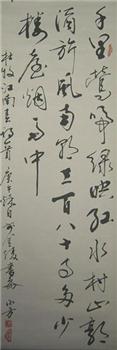 千里鶯啼綠映紅水村山郭
酒旗風南朝四百八十寺多少
樓臺烟雨中
杜牧江南春詩一首庚午秋日